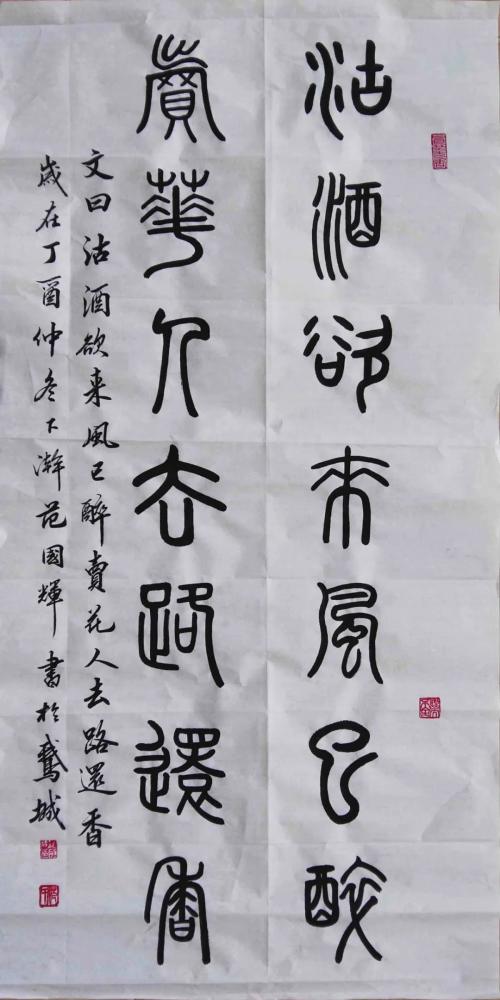 沽酒欲来風已醉
賣華人去路還香
文曰沽酒欲来風已醉賣花人去路還香
歲在丁酉仲冬下澣范國輝書於鵞城